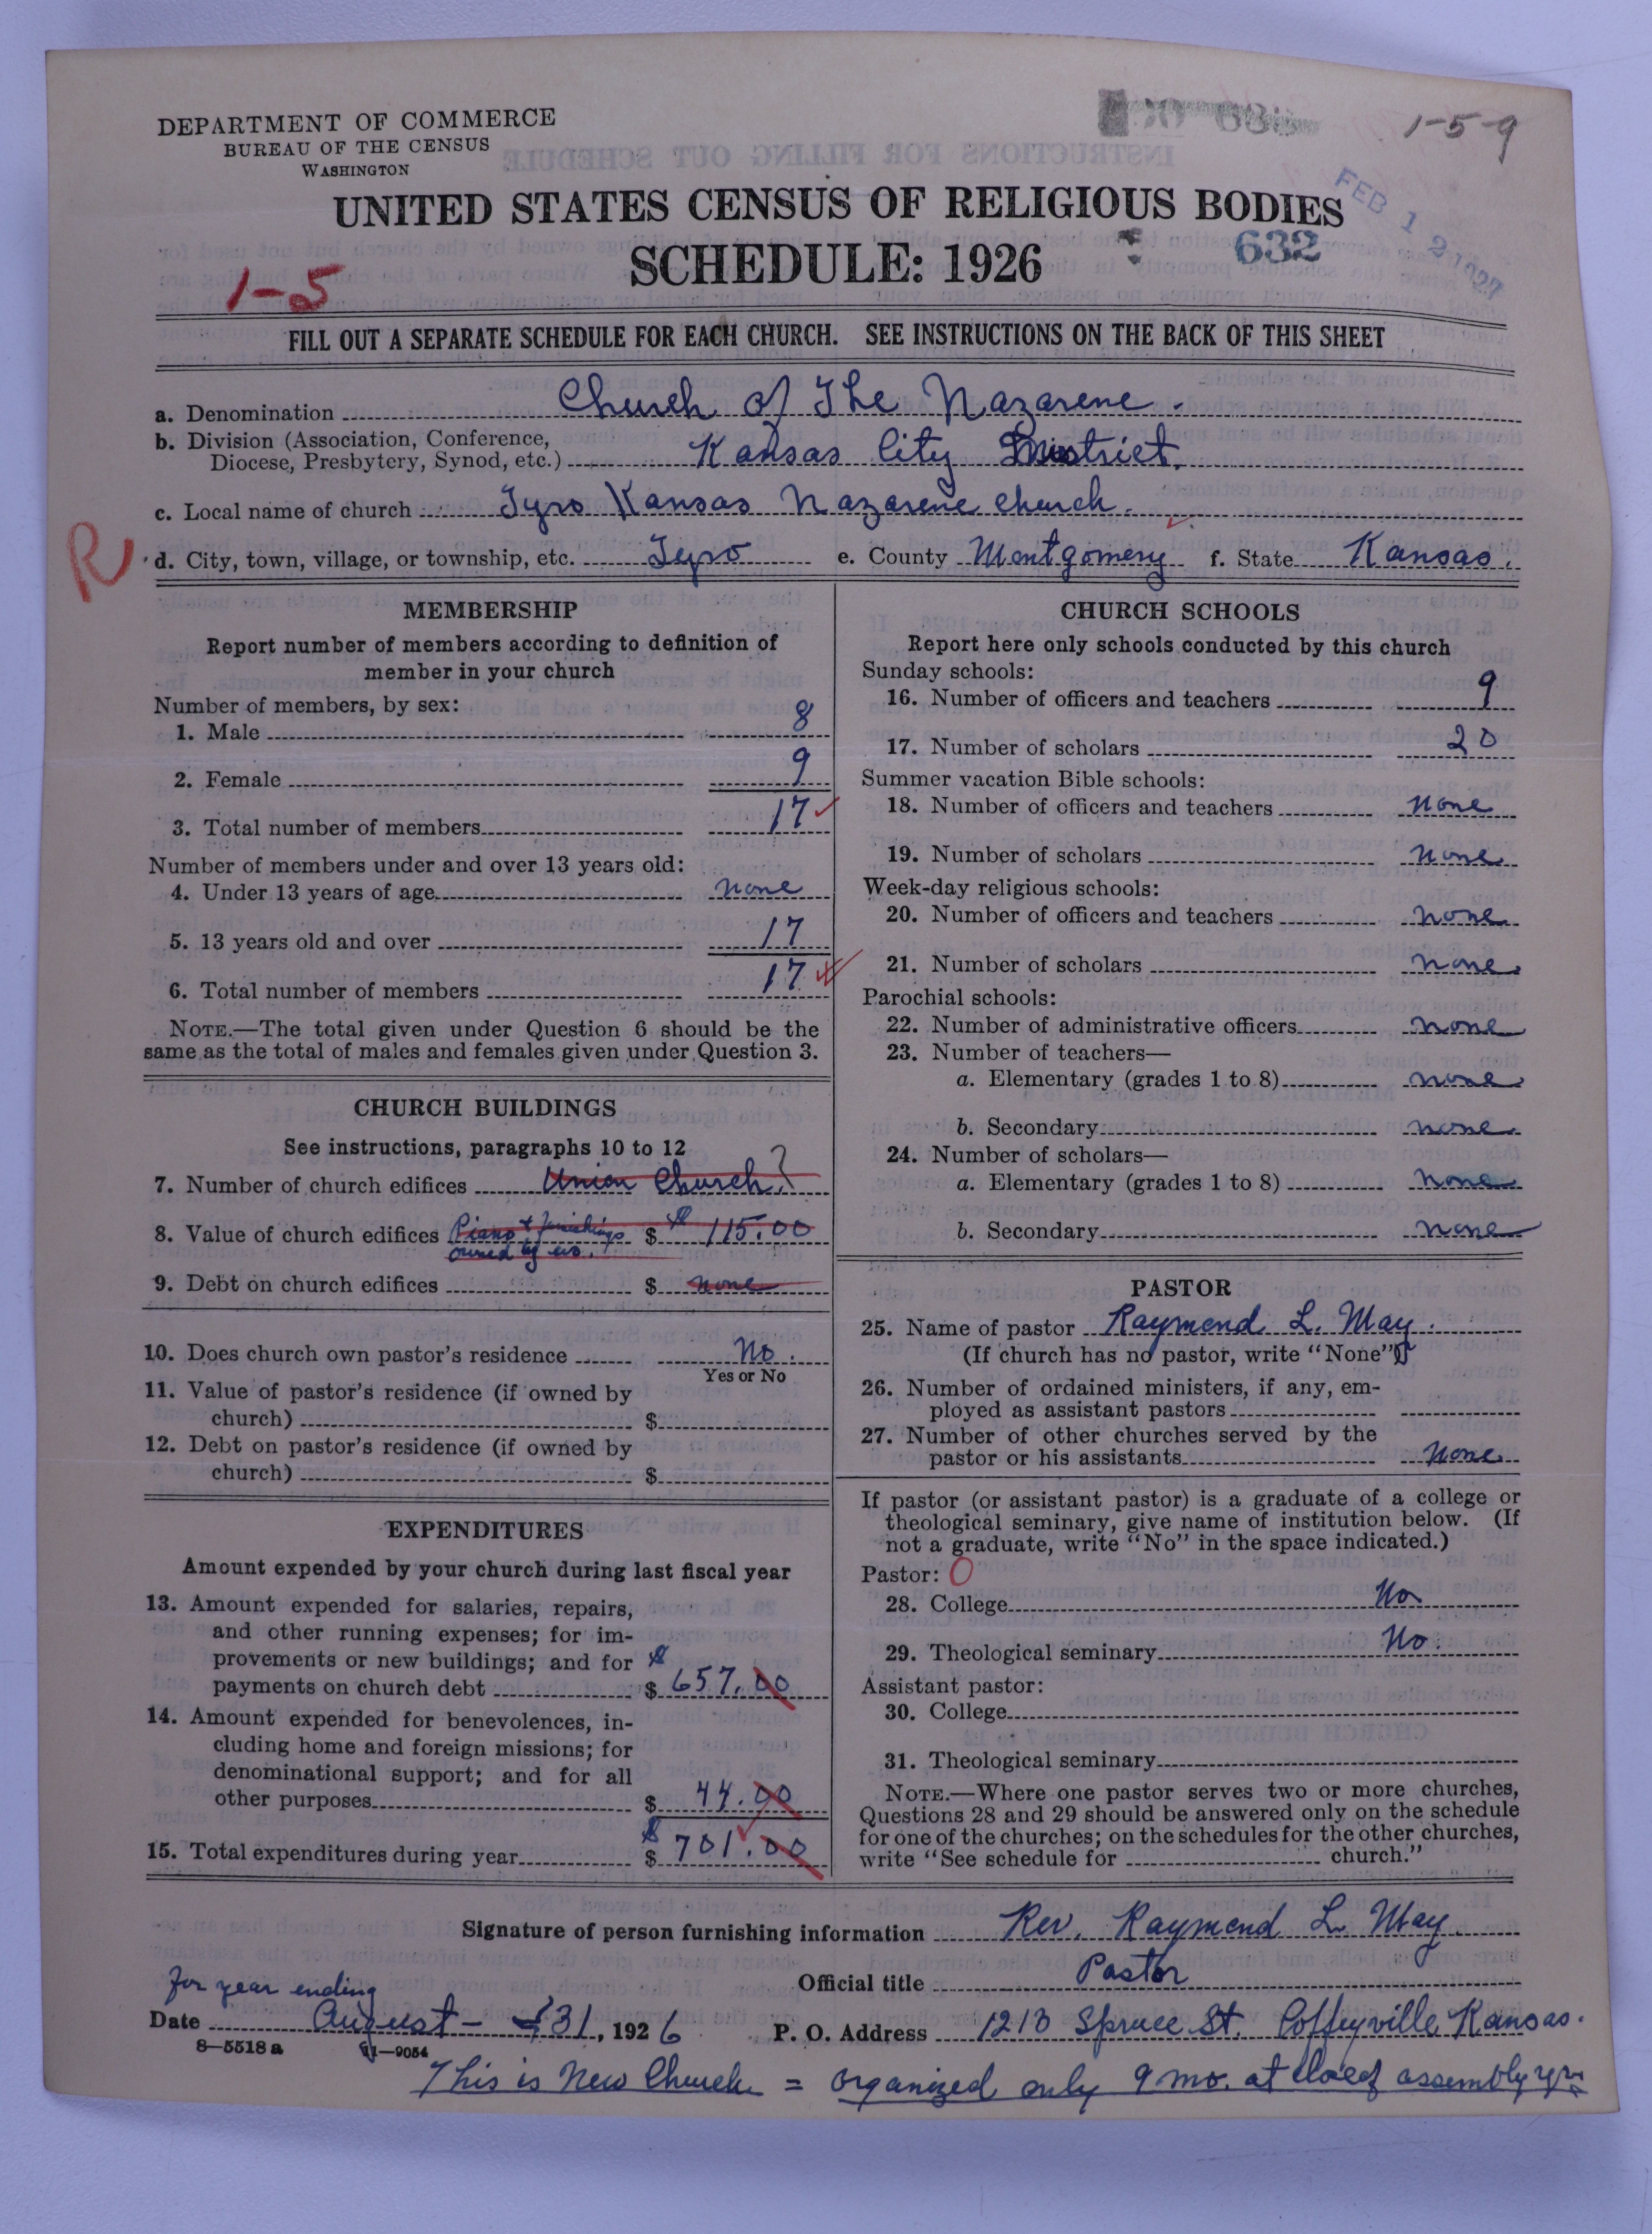 DEPARTMENT OF COMMERCE
BUREAU OF THE CENSUS
WASHINGTON
1-5-9
UNITED STATES CENSUS OF RELIGIOUS BODIES
FEB 12 1927
SCHEDULE: 1926
632
1-5
FILL OUT A SEPARATE SCHEDULE FOR EACH CHURCH. SEE INSTRUCTIONS ON THE BACK OF THIS SHEET
a. Denomination Church of The Nazarene.
b. Division (Association, Conference,
Diocese, Presbytery, Synod, etc.) Kansas City District.
c. Local name of church Tyro Kansas Nazarene church.
R
d. City, town, village, or township, etc. Tyro e. County Montgomery f. State Kansas.
MEMBERSHIP
Report number of members according to definition of
member in your church
Number of members, by sex:
1. Male 8
2. Female 9
3. Total number of members 17
Number of members under and over 13 years old:
4. Under 13 years of age none
5. 13 years old and over 17
6. Total number of members 17
NOTE.—The total given under Question 6 should be the
same as the total of males and females given under Question 3.
CHURCH BUILDINGS
See instructions, paragraphs 10 to 12
7. Number of church edifices Union Church ?
8. Value of church edifices Piano + furnishings $ 115.00
owned by us.
9. Debt on church edifices $ none
10. Does church own pastor's residence No.
Yes or No
11. Value of pastor's residence (if owned by
church) $
12. Debt on pastor's residence (if owned by
church) $
EXPENDITURES
Amount expended by your church during last fiscal year
13. Amount expended for salaries, repairs,
and other running expenses; for im-
provements or new buildings; and for
payments on church debt $ 657.00
14. Amount expended for benevolences, in-
cluding home and foreign missions; for
denominational support; and for all
other purposes $ 44.00
15. Total expenditures during year $ 701.00
CHURCH SCHOOLS
Report here only schools conducted by this church
Sunday schools:
16. Number of officers and teachers 9
17. Number of scholars 20
Summer vacation Bible schools:
18. Number of officers and teachers none
19. Number of scholars none
Week-day religious schools:
20. Number of officers and teachers none
21. Number of scholars none
Parochial schools:
22. Number of administrative officers none
23. Number of teachers—
a. Elementary (grades 1 to 8) none
b. Secondary none
24. Number of scholars—
a. Elementary (grades 1 to 8) none
b. Secondary none
PASTOR
25. Name of pastor Raymond L. May.
(If church has no pastor, write "None")
26. Number of ordained ministers, if any, em-
ployed as assistant pastors
27. Number of other churches served by the
pastor or his assistants None
If pastor (or assistant pastor) is a graduate of a college or
theological seminary, give name of institution below. (If
not a graduate, write "No" in the space indicated.)
Pastor: O
28. College No
29. Theological seminary No.
Assistant pastor:
30. College
31. Theological seminary
NOTE.—Where one pastor serves two or more churches,
Questions 28 and 29 should be answered only on the schedule
for one of the churches; on the schedules for the other churches,
write "See schedule for church."
Signature of person furnishing information Rev. Raymond L. May
Official title Pastor
for year ending
Date August - 31, 1926 P. O. Address 1213 Spruce St. Coffeyville Kansas.
8—5518a 11—9054
This is New Church = organized only 9 mo. at close of assembly yr.